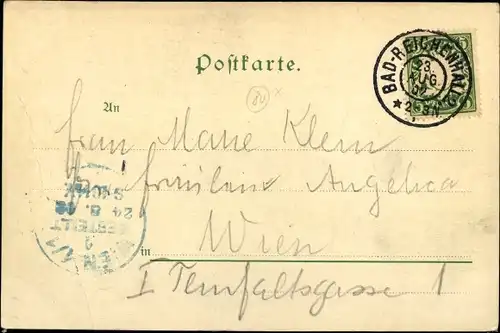 Postkarte.
BAD-REICHENHALL
23
AUG.
2-3 N
An
Frau Marie Klein
Fräulein Angelica
in Wien
I Teinfaltsgasse 1
WIEN 1/1
2
BESTELLT
24. 8.